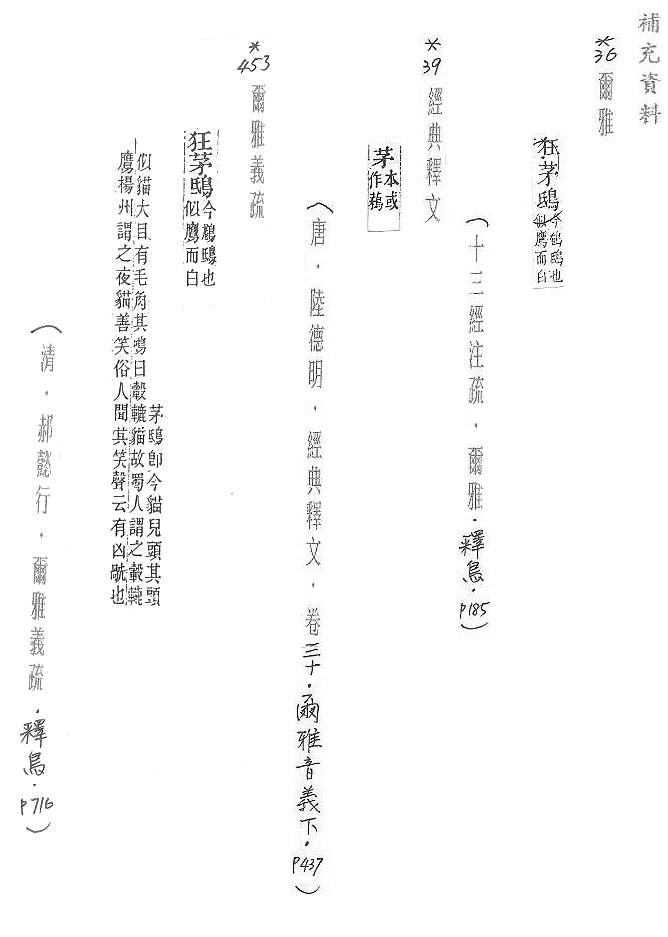 補充資料
*36 爾雅
狂茅鴟今鵂鴟也
似鷹而白
(十三經注疏．爾雅．釋鳥．p185)
*39 經典釋文
茅本或
作蘮
(唐．陸德明．經典釋文．卷三十．爾雅音義下．p437)
*453 爾雅義疏
狂茅鴟今鵂鴟也
似鷹而白
茅鴟卽今貓兒頭其頭
似貓大目有毛角其鳴曰轂轆貓故蜀人謂之轂轆
鷹楊州謂之夜貓善笑俗人聞其笑聲云有凶虩也
(清．郝懿行．爾雅義疏．釋鳥．p716)